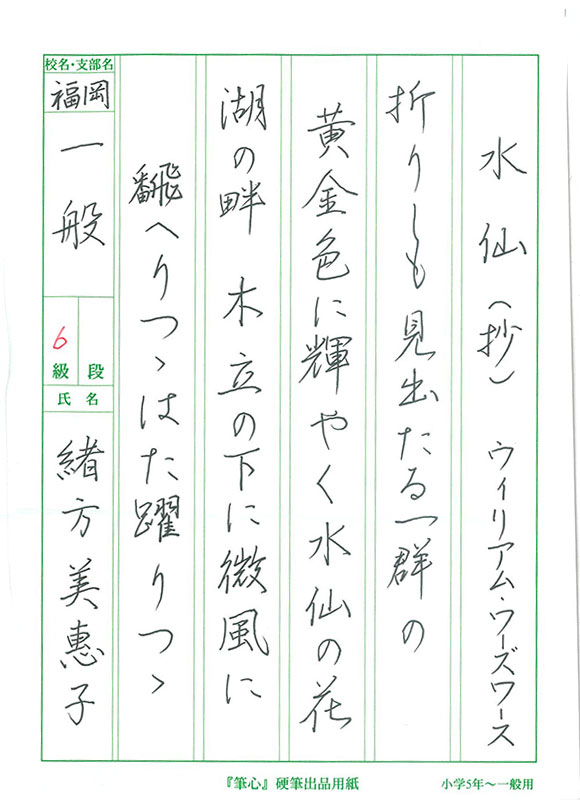 水仙（抄）　ウィリアム・ワーズワース
折りしも見出たる一群の
黄金色に輝やく水仙の花
湖の畔　木立の下に微風に
飜へりつゝはた躍りつゝ
校名・支部名
福岡
一般
6
級　段
氏名
緒方美恵子
『筆心』硬筆出品用紙
小学5年～一般用